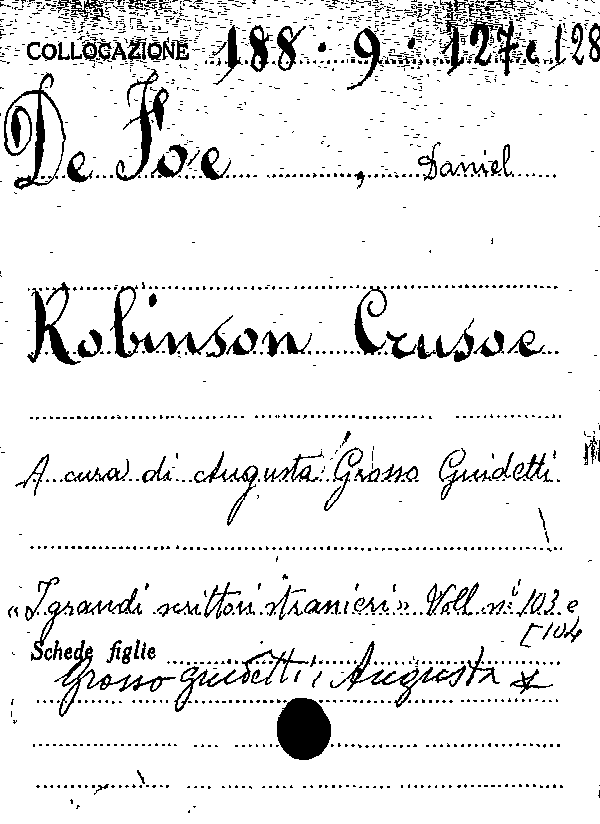 COLLOCAZIONE 188.9.127e128
De Foe, Daniel
Robinson Crusoe
A cura di Augusta Grosso Guidetti
«I grandi scrittori stranieri» Voll. ni 103 e
[104
Schede figlie
Grosso Guidetti, Augusta *